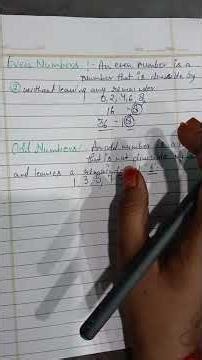 Even Numbers :- An even number is a
number that is divisible by
2 without leaving any remainder
0, 2, 4, 6, 8
16 - 6
36 - 6
Odd Numbers :- An odd number is a
that is not divisible
and leaves a
1, 3, 5, 7